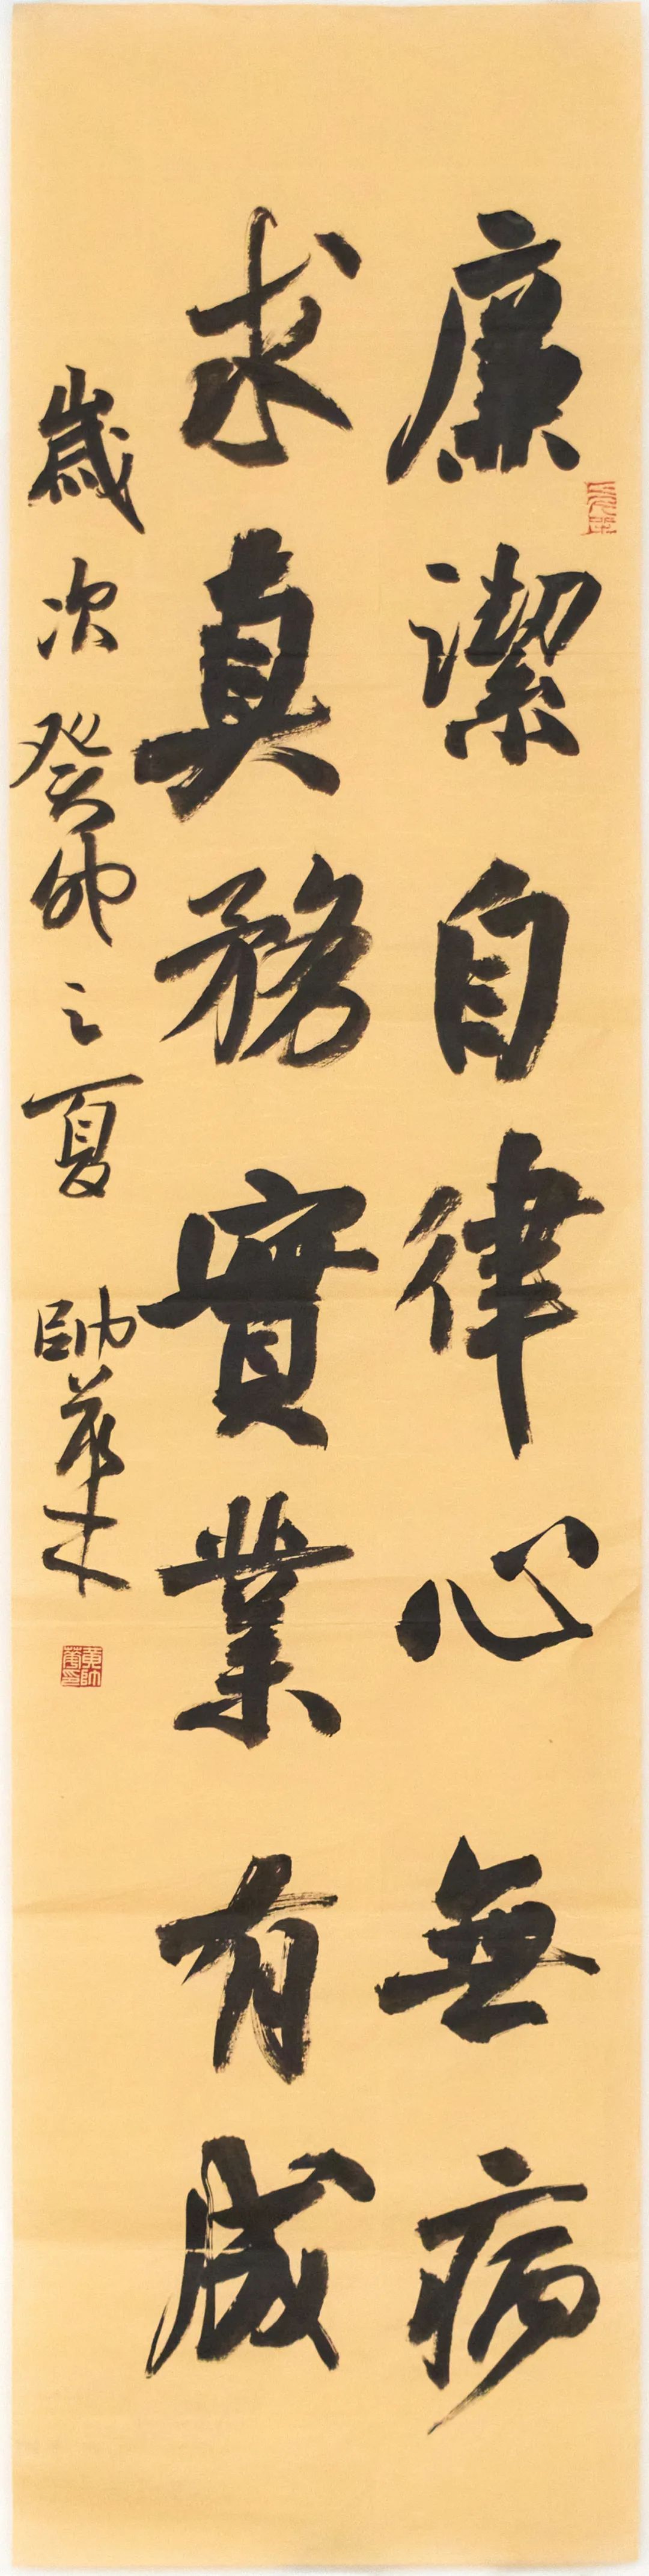 廉潔自律心無病
求真務實業有成
歲次癸卯之夏 帥華
黄帥華印